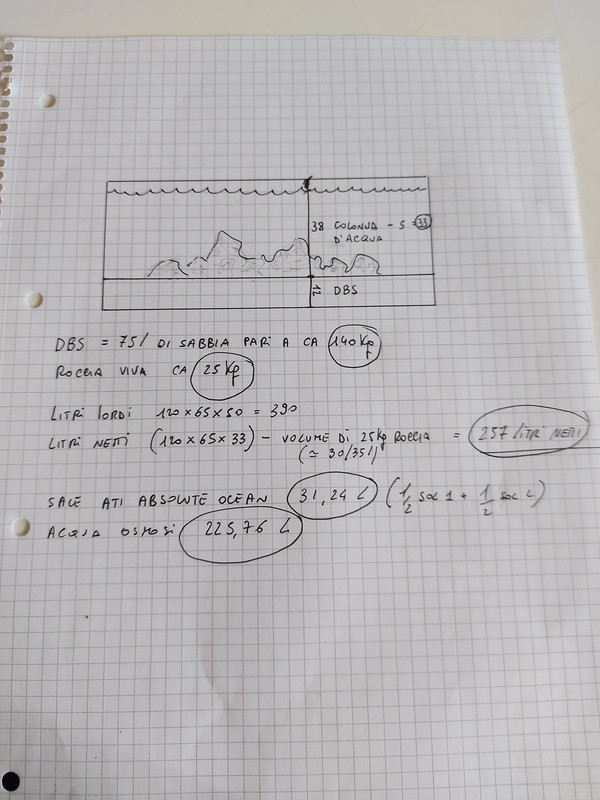 38 COLONNA - 5 = 33
D'ACQUA
12 DBS
DBS = 75l DI SABBIA PARI A CA 140 Kg
ROCCIA VIVA CA 25 Kg
LITRI LORDI 120 x 65 x 50 = 390
LITRI NETTI (120 x 65 x 33) - VOLUME DI 25kg ROCCIA = 257 LITRI NETTI
(≃ 30/35l)
SALE ATI ABSOLUTE OCEAN 31,24 L (1/2 sol 1 + 1/2 sol 2)
ACQUA OSMOSI 225,76 L